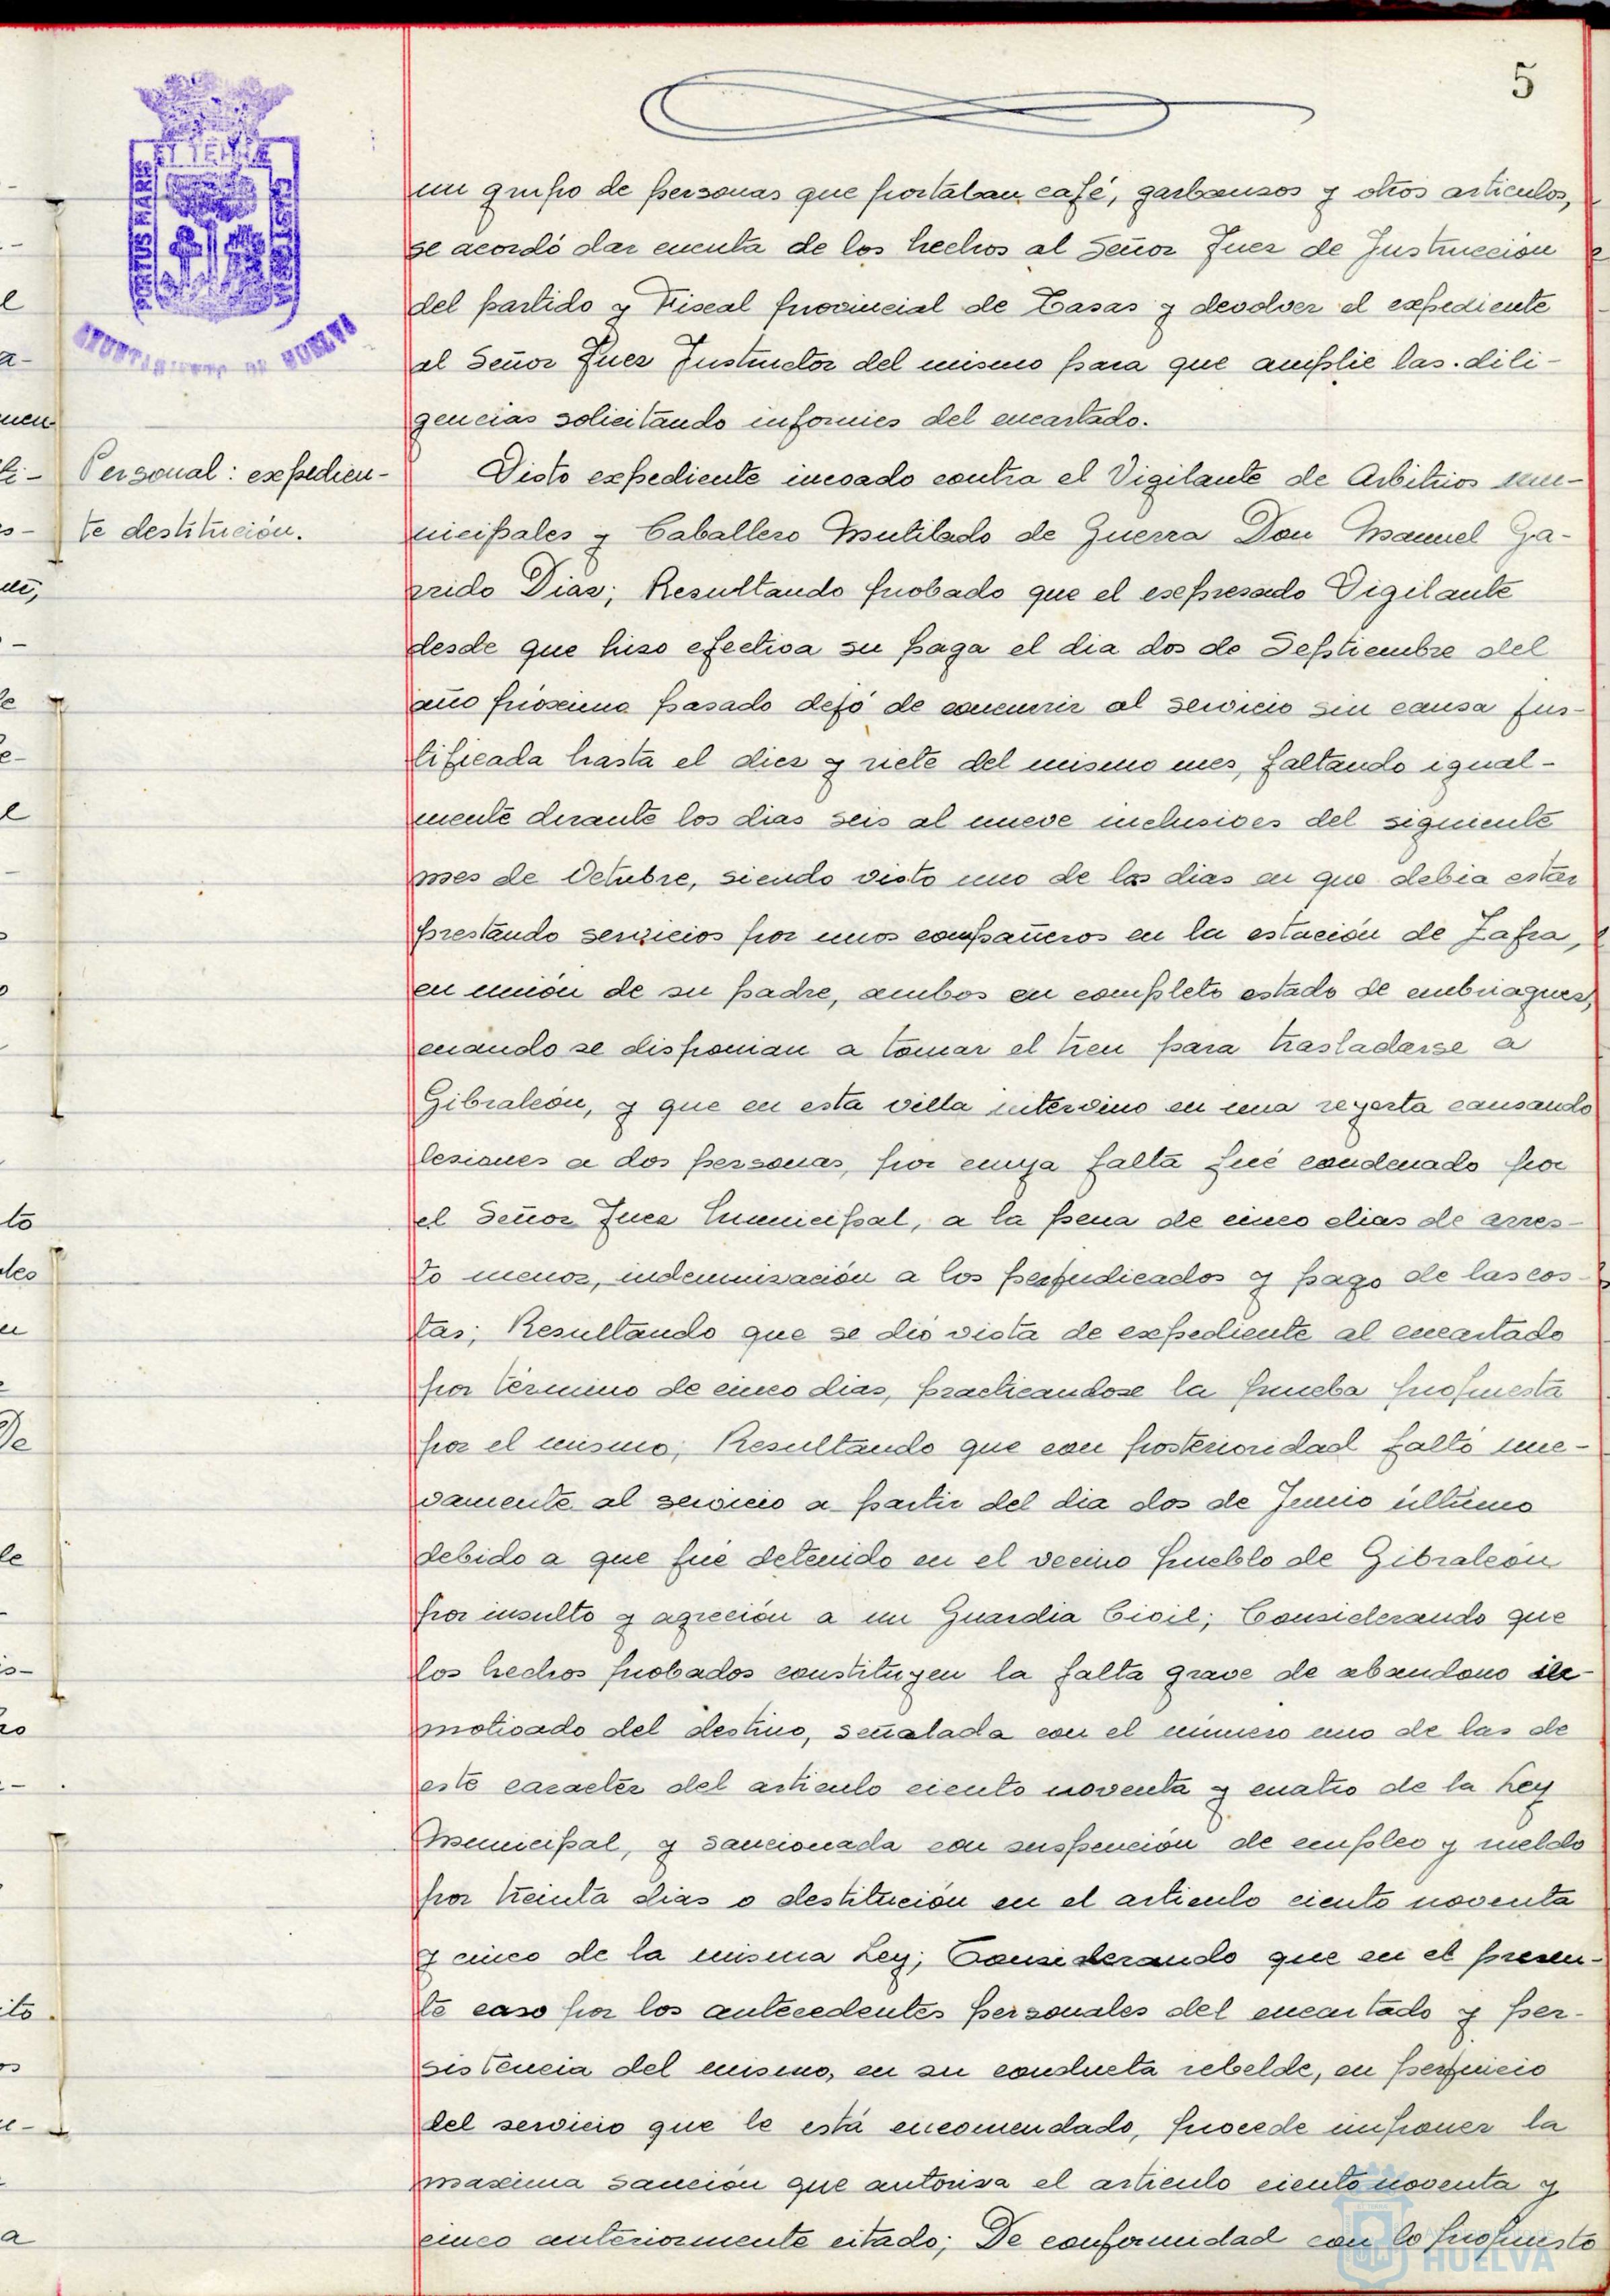 5
ET TERRÆ
PORTUS MARIS
CUSTODIA
AYUNTAMIENTO DE HUELVA
un grupo de personas que portaban café, garbansos y otros articulos,
se acordó dar cuenta de los hechos al Señor Juez de Instrucción
del partido y Fiscal provincial de Tasas y devolver el expediente
al Señor Juez Instructor del mismo para que amplie las dili-
gencias solicitando informes del encartado.
Personal: expedien-
te destitución.
Visto expediente incoado contra el Vigilante de Arbitrios mu-
nicipales y Caballero Mutilado de Guerra Don Manuel Ga-
rrido Dias; Resultando probado que el expresado Vigilante
desde que hiso efectiva su paga el dia dos de Septiembre del
año próximo pasado dejó de concurrir al servicio sin causa jus-
tificada hasta el dies y siete del mismo mes, faltando igual-
mente durante los dias seis al nueve inclusives del siguiente
mes de Octubre, siendo visto uno de los dias en que debia estar
prestando servicios por unos compañeros en la estación de Zafra,
en unión de su padre, ambos en completo estado de embriagues,
cuando se disponian a tomar el tren para trasladarse a
Gibraleón, y que en esta villa intervino en una reyerta causando
lesiones a dos personas, por cuya falta fué condenado por
el Señor Juez Municipal, a la pena de cinco dias de arres-
to menor, indemnisación a los perjudicados y pago de las cos-
tas; Resultando que se dió vista de expediente al encartado
por término de cinco dias, practicandose la prueba propuesta
por el mismo; Resultando que con posterioridad faltó nue-
vamente al servicio a partir del dia dos de Junio último
debido a que fué detenido en el vecino pueblo de Gibraleón
por insulto y agreción a un Guardia Civil; Considerando que
los hechos probados constituyen la falta grave de abandono in-
motivado del destino, señalada con el número uno de las de
este caracter del articulo ciento noventa y cuatro de la Ley
Municipal, y sancionada con suspención de empleo y sueldo
por treinta dias o destitución en el articulo ciento noventa
y cinco de la misma Ley; Considerando que en el presen-
te caso por los antecedentes personales del encartado y per-
sistencia del mismo, en su conducta rebelde, en perjuicio
del servicio que le está encomendado, procede imponer la
maxima sanción que autorisa el articulo ciento noventa y
cinco anteriormente citado; De conformidad con lo propuesto
HUELVA